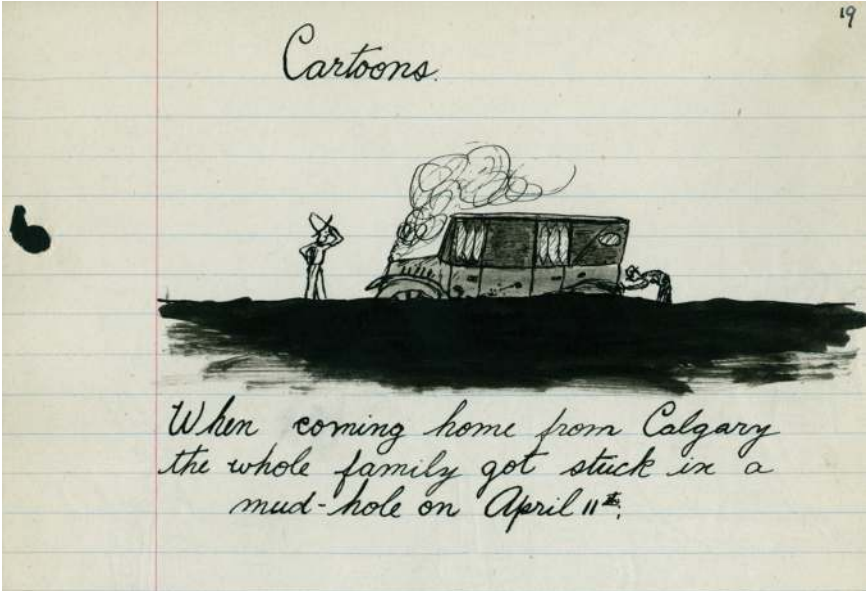 19
Cartoons.
When coming home from Calgary
the whole family got stuck in a
mud-hole on April 11th.